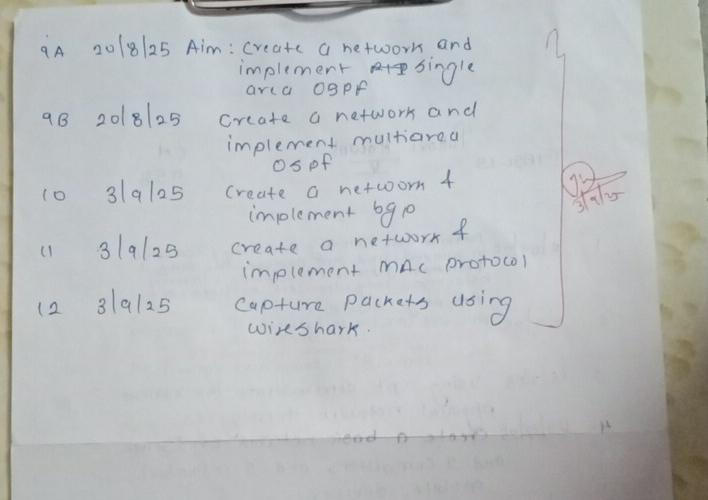 9A 20/8/25 Aim: Create a network and
implement single
area OSPF
9B 20/8/25 Create a network and
implement multiarea
OSpf
10 3/9/25 Create a network &
implement bgp
11 3/9/25 create a network &
implement MAC protocol
12 3/9/25 Capture Packets using
wireshark.
3/9/25